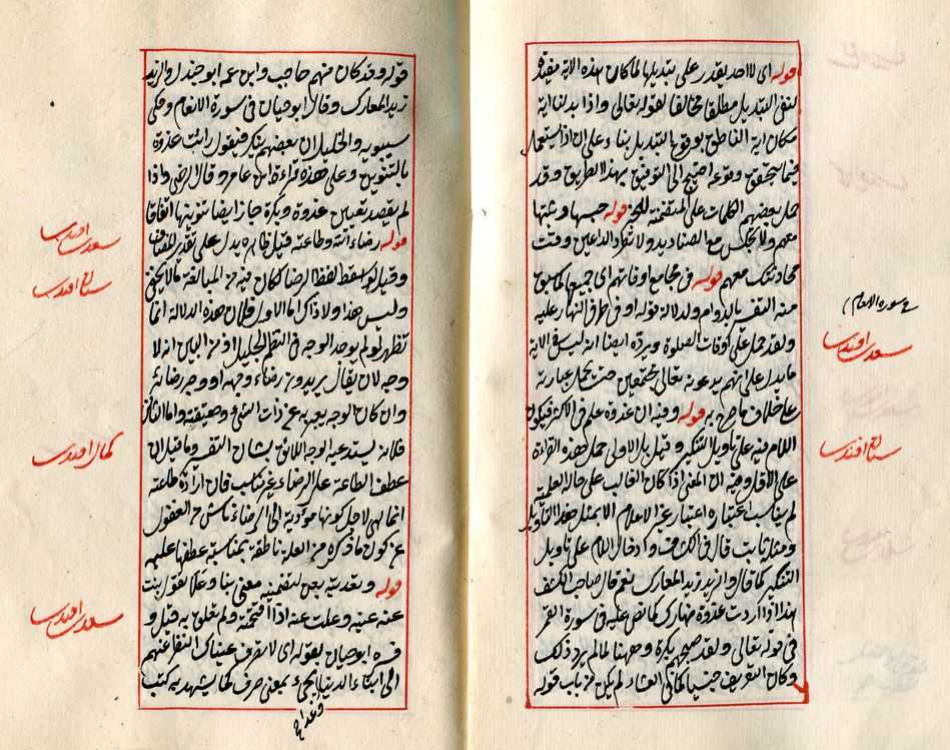 قوله اى لا احد يقدر على تبديلها لما كان هذه الاية مفيدة
لنفى التبديل مطلقا مخالفا لقوله تعالى واذا بدلنا اية
مكان اية الناطق بوقوع التبديل بناء على ان اذا يستعمل
فيما يتحقق وقوعه احتيج الى التوفيق بهذا الطريق وقد
حمل بعضهم الكلمات على المتضمنة قوله حبسها وثبتها
معهم ولا تجلس مع الصناديد
معهم قوله فى مجامع اوقاتهم اى جميعها كما سبق
منه التفسير بالدوام ولدلالة قوله او فى طرفى النهار عليه
ولقد حمل على اوقات الصلوة ويرده ايضا انه ليس فى الاية
ما يدل على انهم يدعونه تعالى مجتمعين حتى يحمل عبارته
على خلاف ما صرح به قوله وفيه ان غدوة علم فى الاكثر فيكون
اللام فيه على تأويل التنكير حمل هذه القراءة
على الاقل وفيه ان المعنى اذا كان الغالب على حاله العلمية
لم يناسب اعتباره اعتبار غير الاعلام الا بمثل هذا التأويل
ومثل ثابت قال فى الكشاف وادخال اللام على تأويل
التنكير كما قال وازيد زيد المعارك نعم قال صاحب الكشف
هذا اذا اردت غدوة نهارك كما نص عليه فى سورة القمر
فى قوله تعالى ولقد صبحهم بكرة وههنا لما لم يرد ذلك
وكان التعريف جنسيا كما فى العشاء لم يكن من باب قوله
فى سورة الانعام
سعدى افندى
قوله وقد كان منهم حاجب وابن عمه ابو جندل والزيد
زيد المعارك وقال ابو حيان فى سورة الانعام وحكى
سيبويه والخليل ان بعضهم ينكر فيقول رايت غدوة
بالتنوين وعلى هذه قراءة ابن عامر وقال الرضى واذا
لم يقصد تعيين غدوة وبكرة جاز ايضا تنوينها اتفاقا
قوله رضاء الله وطاعته قيل ظاهره يدل على تقدير المضاف
وقيل لو اسقط لفظ الرضا لكان فيه من المبالغة ما لا يخفى
وليس هذا ولا ذاك اما الاول فلان هذه الدلالة انما
تظهر لو لم يوجد الوجه فى النظم الجليل اذ من البين انه لا
وجه لان يقال يريدون رضاء وجهه او وجه رضائه
وان كان الوجه يعبر به عن ذات الشئ وحقيقته واما الثانى
فلانه يستدعيه الوجه اللائق بشان التفسير وما قيل ان
عطف الطاعة على الرضاء غير مناسب فان ارادة طاعته
انما هى لاجل كونها مؤدية الى الرضاء ناش من الغفول
عن كون ما ذكره من العلة ناطقة بمناسبة عطفها عليه
قوله وتعديته بعن لتضمينه معنى نبا وعلا لقولك نبت
عنه عينه وعلت عنه اذا اقتحمته ولم تعلق به قيل و
فسره ابو حيان بقوله اى لا تصرف عيناك النظر عنهم
الى ابناء الدنيا بمعنى صرف كما يشهد به كتب
سعدى افندى
كمال افندى
سعدى افندى